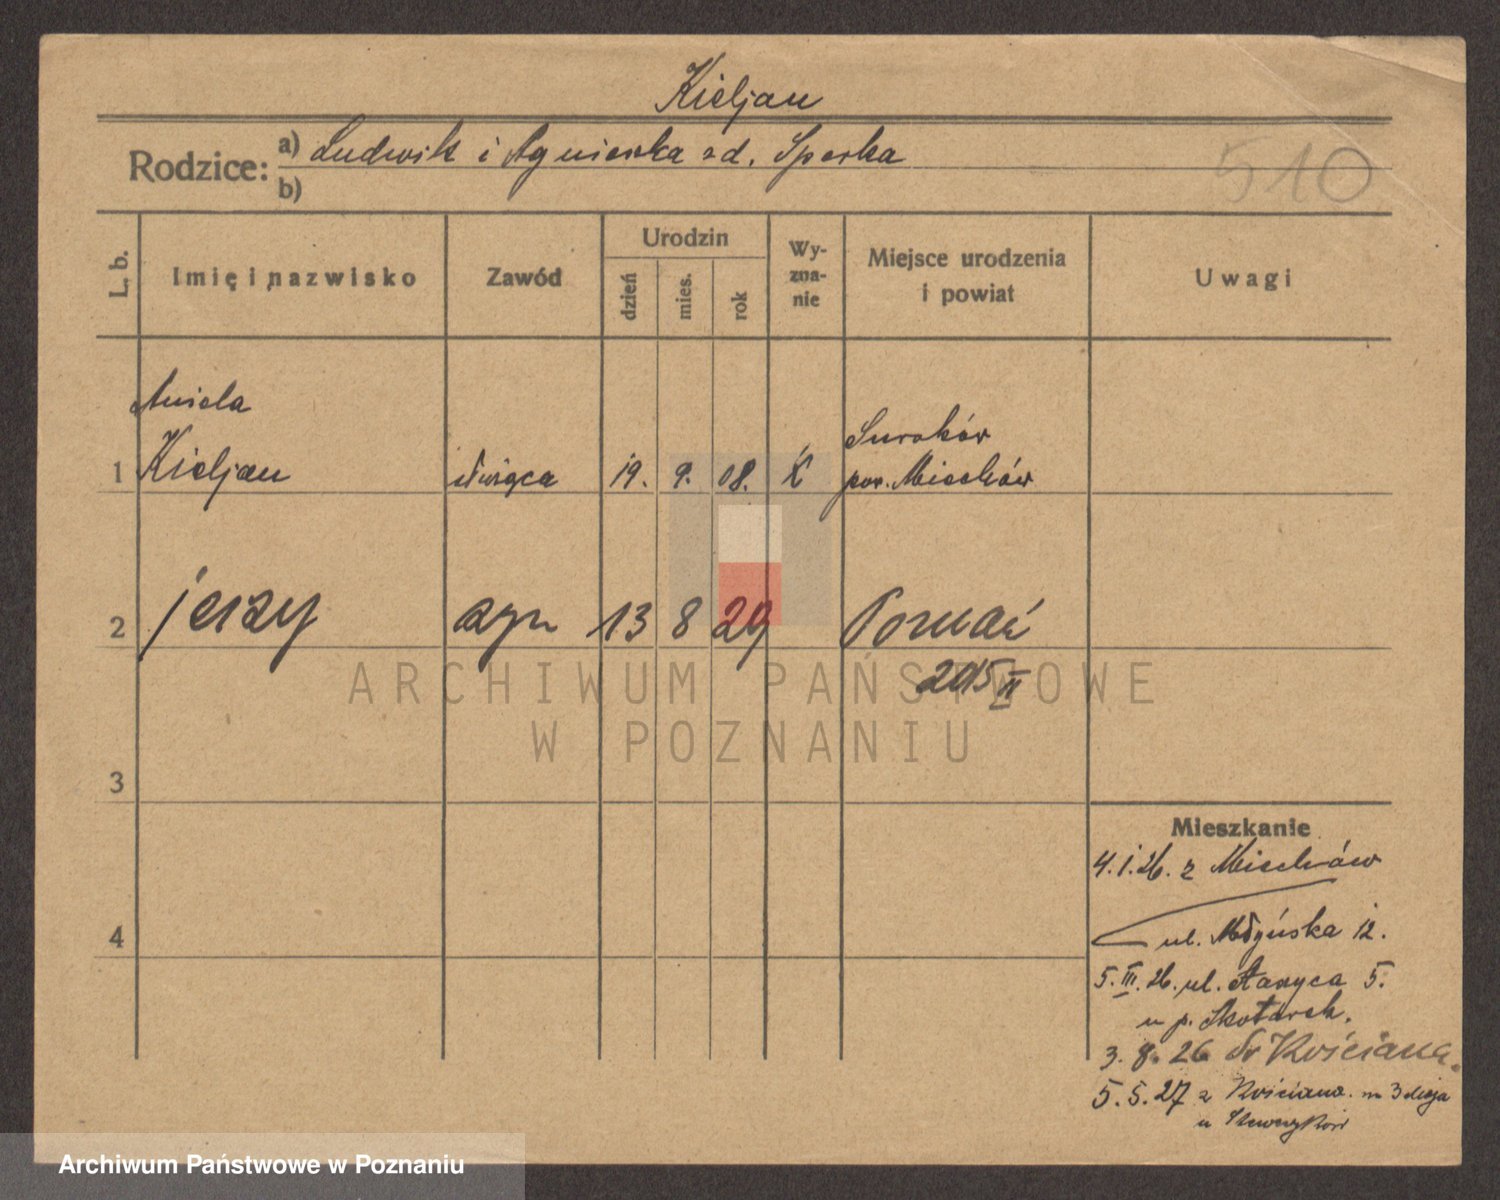 Kieljan
Rodzice: a) Ludwik i Agnieszka zd. Sperka
b)
510
L. b.
Imię i nazwisko
Zawód
Urodzin
dzień
mies.
rok
Wy-
zna-
nie
Miejsce urodzenia
i powiat
Uwagi
Aniela
1 Kieljan służąca 19. 9. 08. K
pow. Miechów
2 jerzy syn 13 8 29 Poznań
2015 II
3
4
Mieszkanie
4.1.26. z Miechów
ul. Młyńska 12.
5. III. 26. ul. 5.
u p.
3. 8. 26 do Kościana.
5. 5. 27 z Kościana. 3 Maja
u
ARCHIWUM PAŃSTWOWE
W POZNANIU
Archiwum Państwowe w Poznaniu